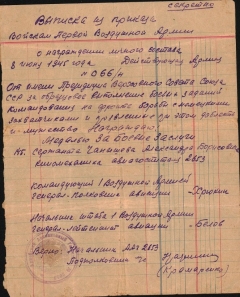 секретно
Выписка из приказа
Войскам Первой Воздушной Армии
о награждении личного состава
8 июня 1945 года Действующая Армия
№ 066/н
От имени Президиума Верховного Совета Союза
ССР за образцовое выполнение боевых заданий
командования на фронте борьбы с немецкими
захватчиками и проявленные при этом доблесть
и мужество Награждаю:
Медалью За Боевые Заслуги
Сержанта Александра Борисовича
киномеханика авиагоспиталя
Командующий 1 Воздушной Армией
генерал-полковник авиации -Хрюкин
Начальник штаба 1 Воздушной Армии
генерал-лейтенант авиации -Белов
Верно: Начальник
Подполковник